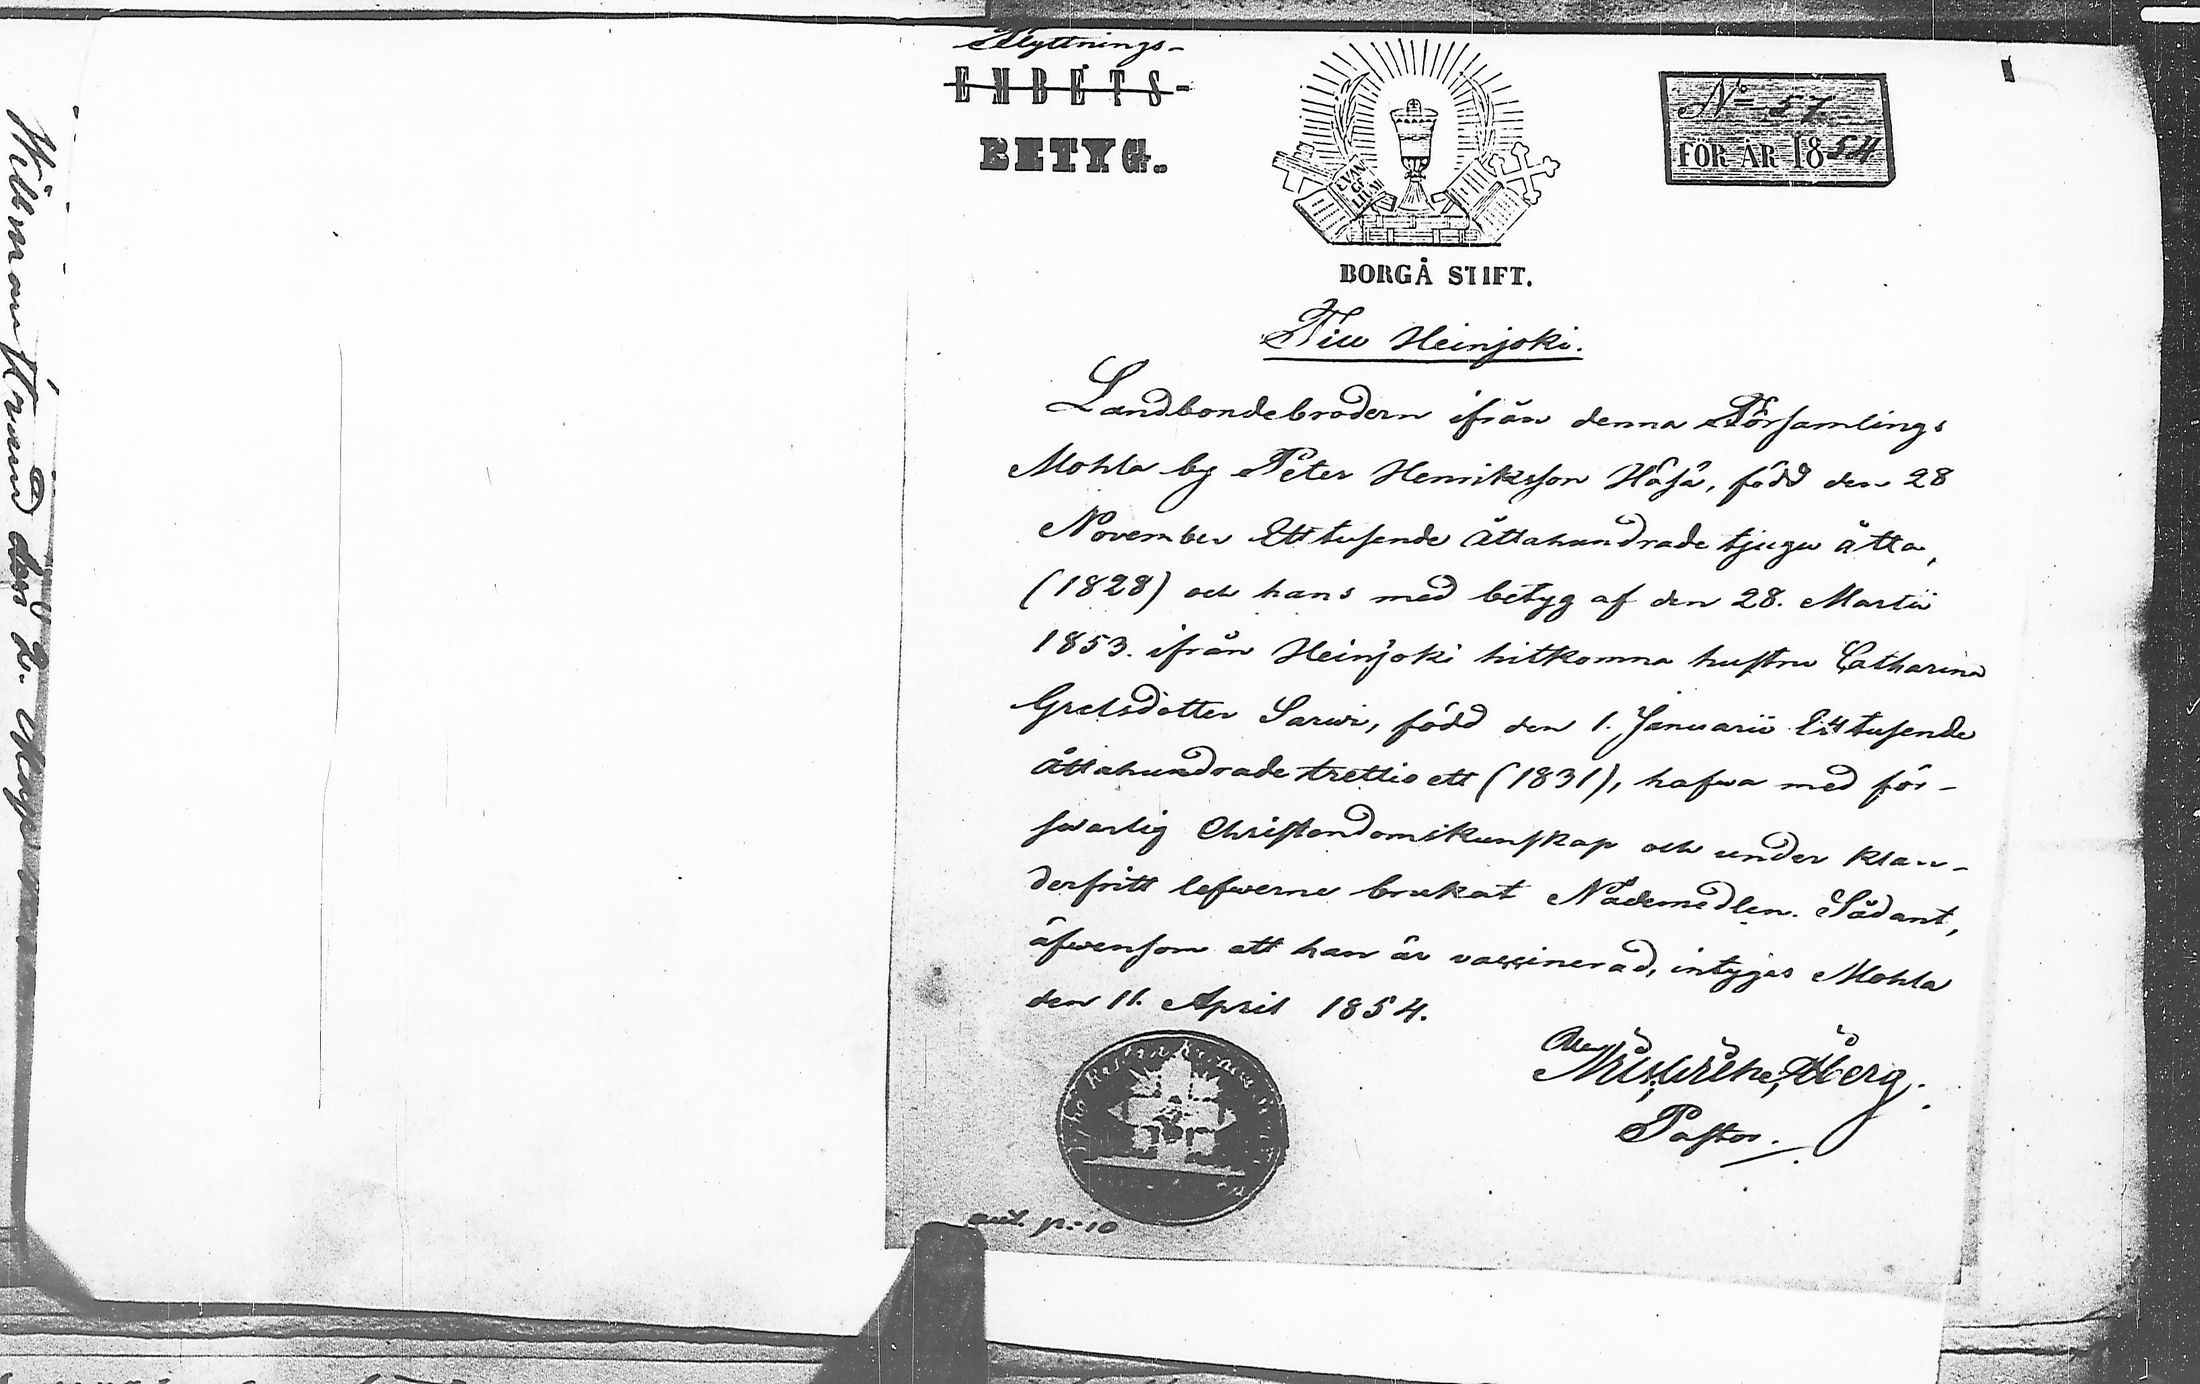 Willmanstrand den 2.
Flyttnings-
EMBETS-
BETYG.
No 57
FÖR ÅR 1854
EVAN
GE
LIUM
BORGÅ STIFT.
Till Heinjoki.
Landbondebrodern ifrån denna Församlings
Mohla by Peter Henriksson Häsä, född den 28
November Ett tusende Åttahundrade tjugu åtta,
(1828) och hans med betyg af den 28. Martii
1853. ifrån Heinjoki hitkomna hustru Catharina
Grelsdotter Sarwi, född den 1. Januarii Ett tusende
Åttahundrade trettio ett (1831), hafwa med för-
swarlig Christendomskunskap och under klan-
derfritt lefwerne brukat Nådemedlen. Sådant,
äfwensom att han är vaccinerad, intygas Mohla
den 11. April 1854.
Öberg.
Pastor.
p. 10